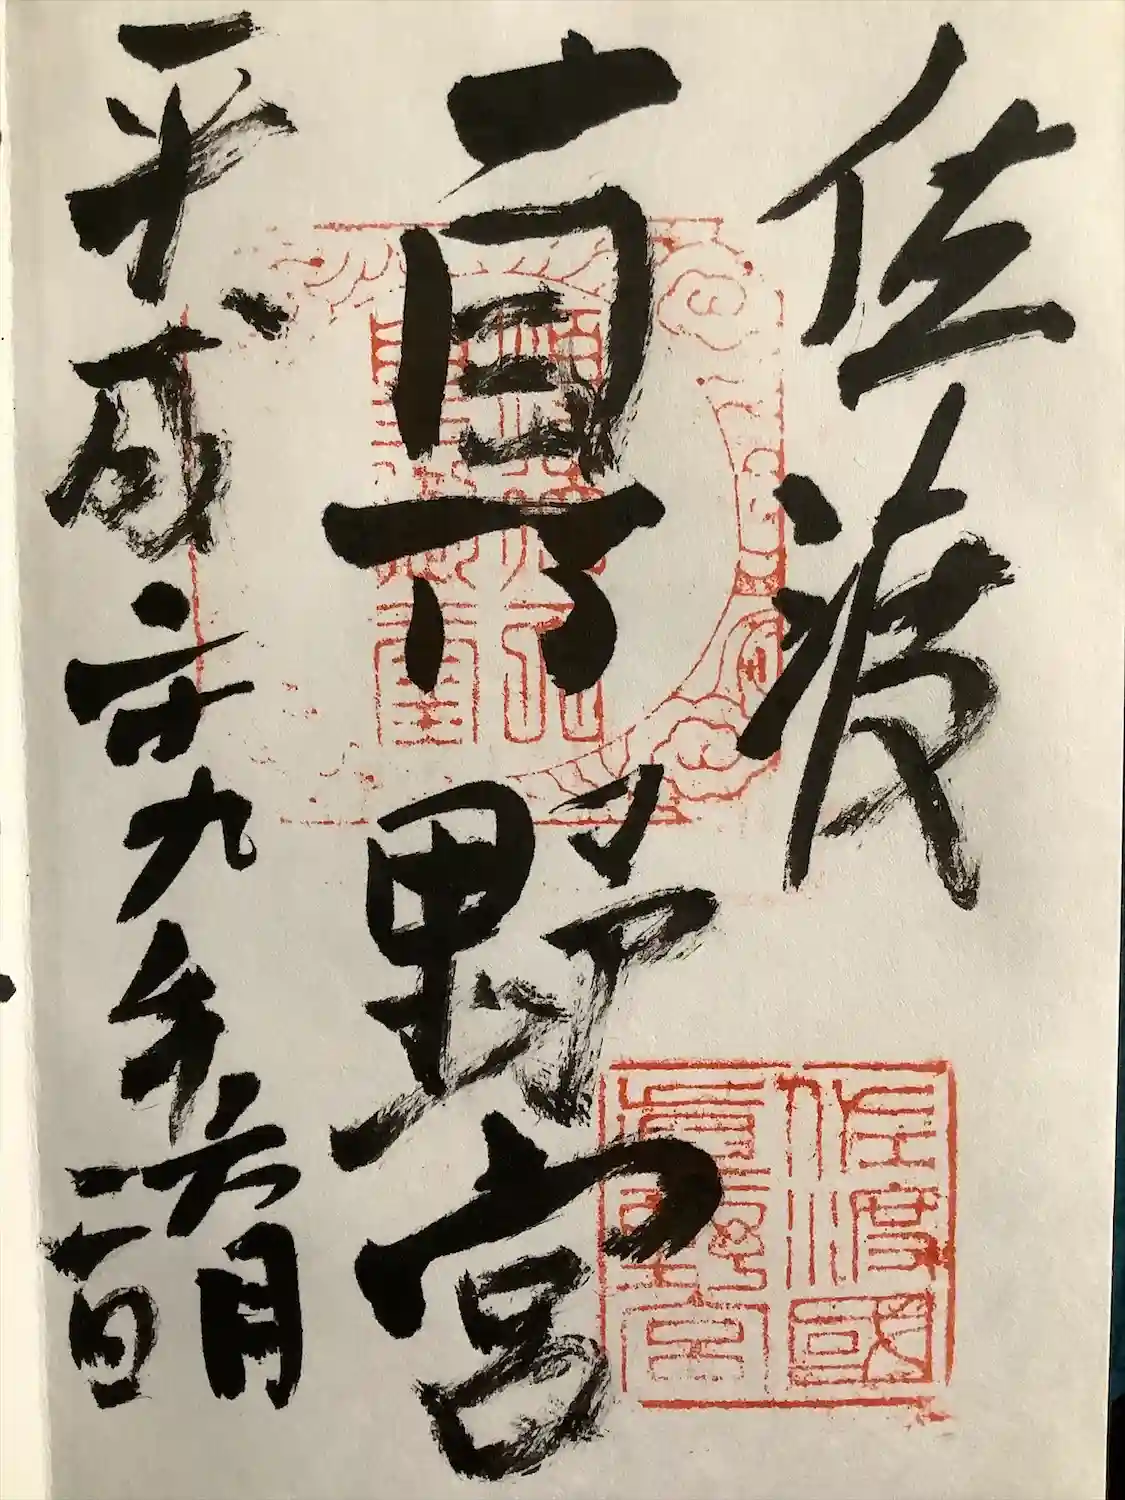 佐渡
真野宮
平成二十九年六月二日
佐渡國
眞野宮